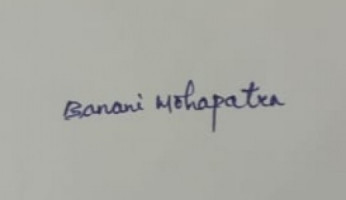 Banani Mohapatra